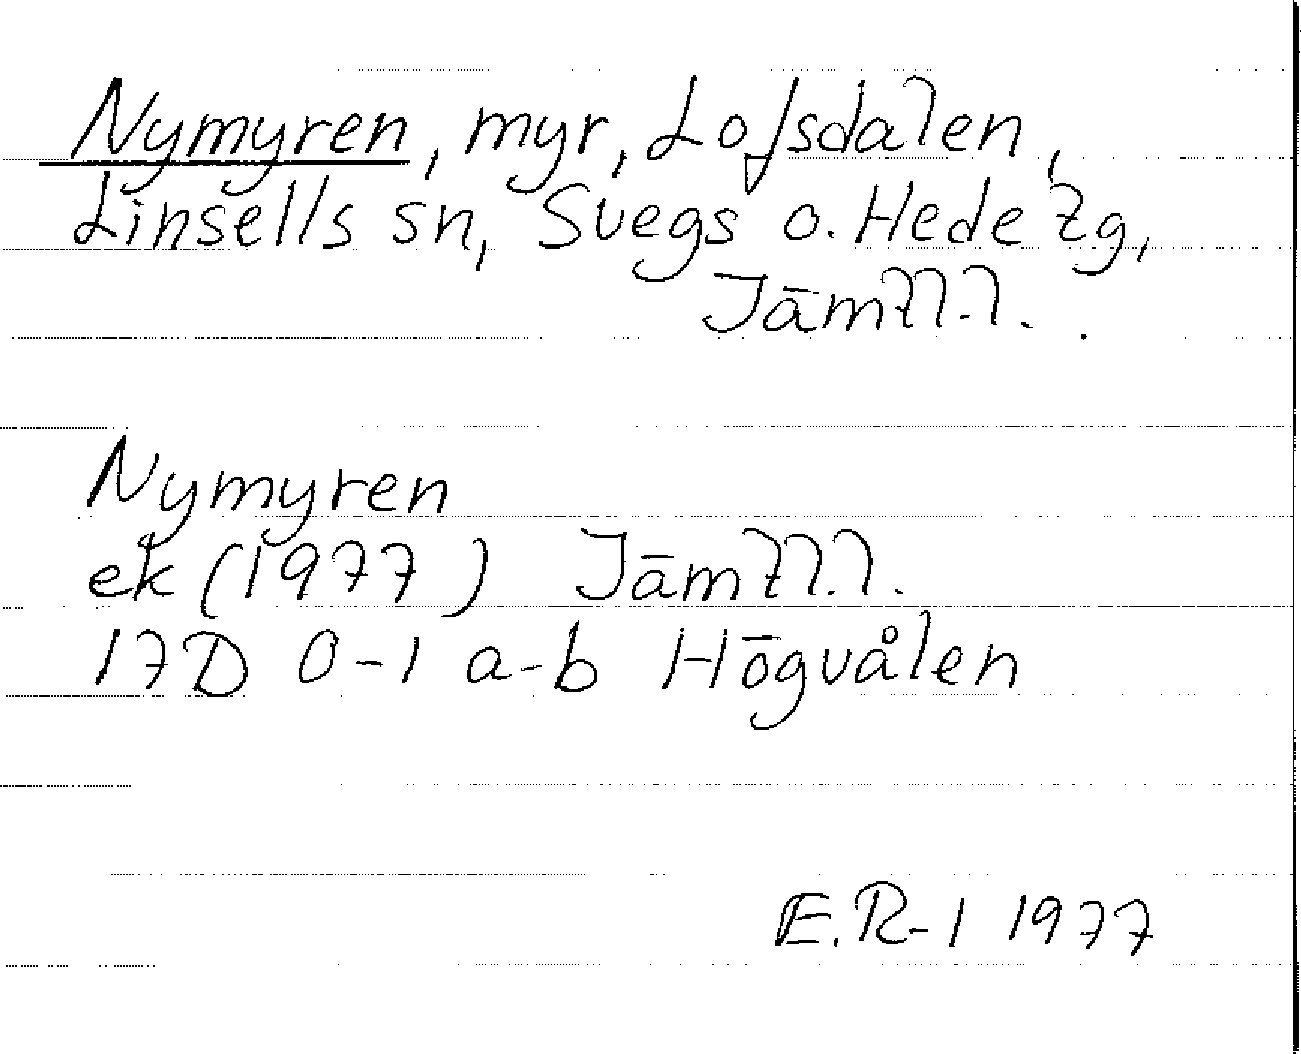 Nymyren, myr, Lofsdalen,
Linsells sn, Svegs o. Hede tg,
Jämtl.l.
Nymyren
ek (1977) Jämtl.l.
17D 0-1 a-b Högvålen
E.R-l 1977